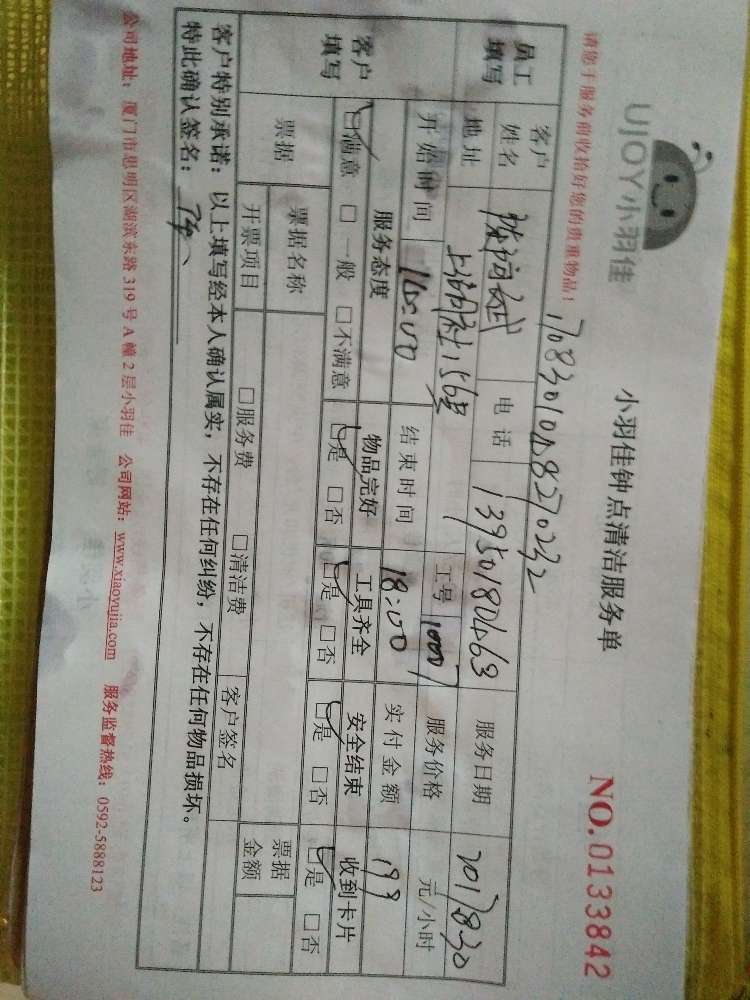 UJOY小羽佳
小羽佳钟点清洁服务单
NO.0133842
请您于服务前收拾好您的贵重物品！
员工填写
客户姓名
电话 13950180463
服务日期 2017830
地址
工号
服务价格 元/小时
开始时间
结束时间 18:00
实付金额 199
客户填写
服务态度 物品完好 工具齐全 安全结束 收到卡片
☑满意 □一般 □不满意 ☑是 □否 ☑是 □否 ☑是 □否 ☑是 □否
票据
票据名称
票据金额
开票项目 □服务费 □清洁费 客户签名
客户特别承诺：以上填写经本人确认属实，不存在任何纠纷，不存在任何物品损坏。
特此确认签名：
公司地址：厦门市思明区湖滨东路 319 号 A 幢 2 层小羽佳 公司网站：www.xiaoyujia.com 服务监督热线：0592-5888123